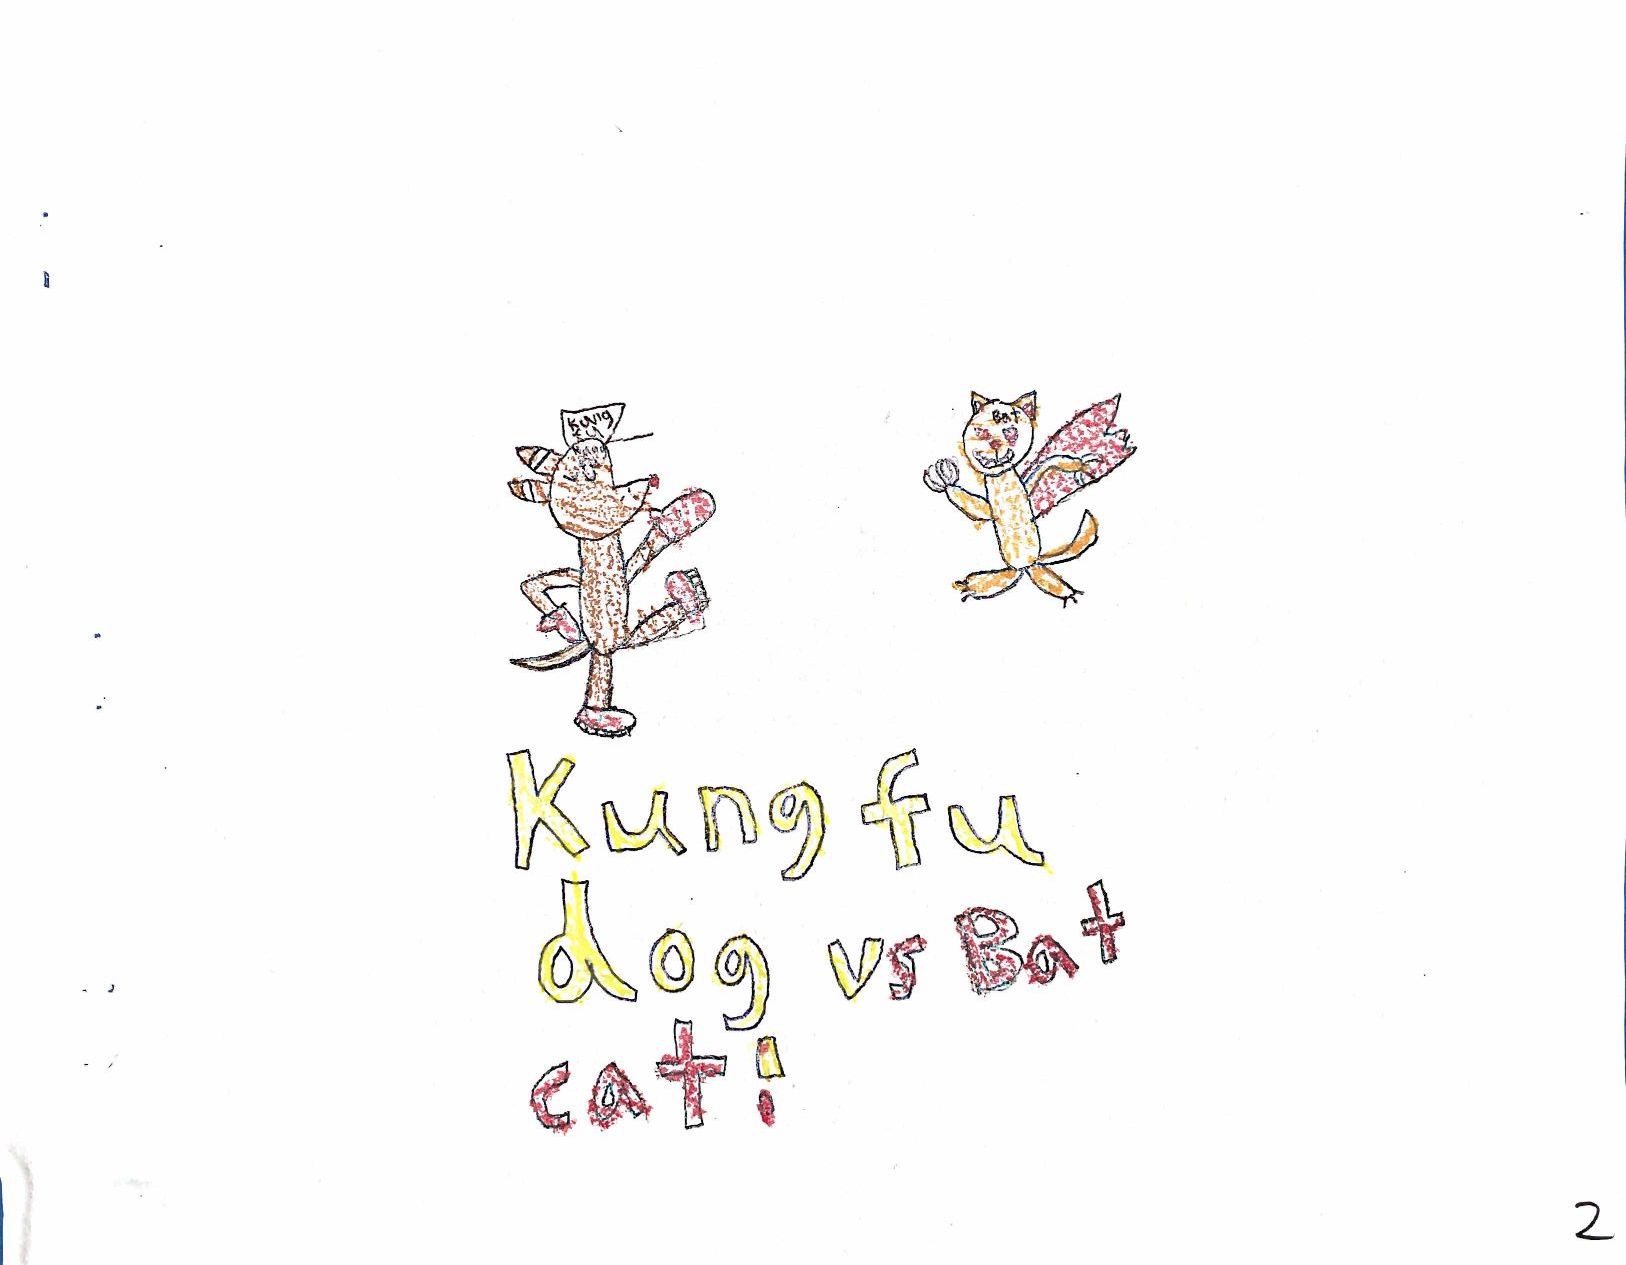 Kung
fu
Bat
Kung fu
dog vs Bat
cat!
2